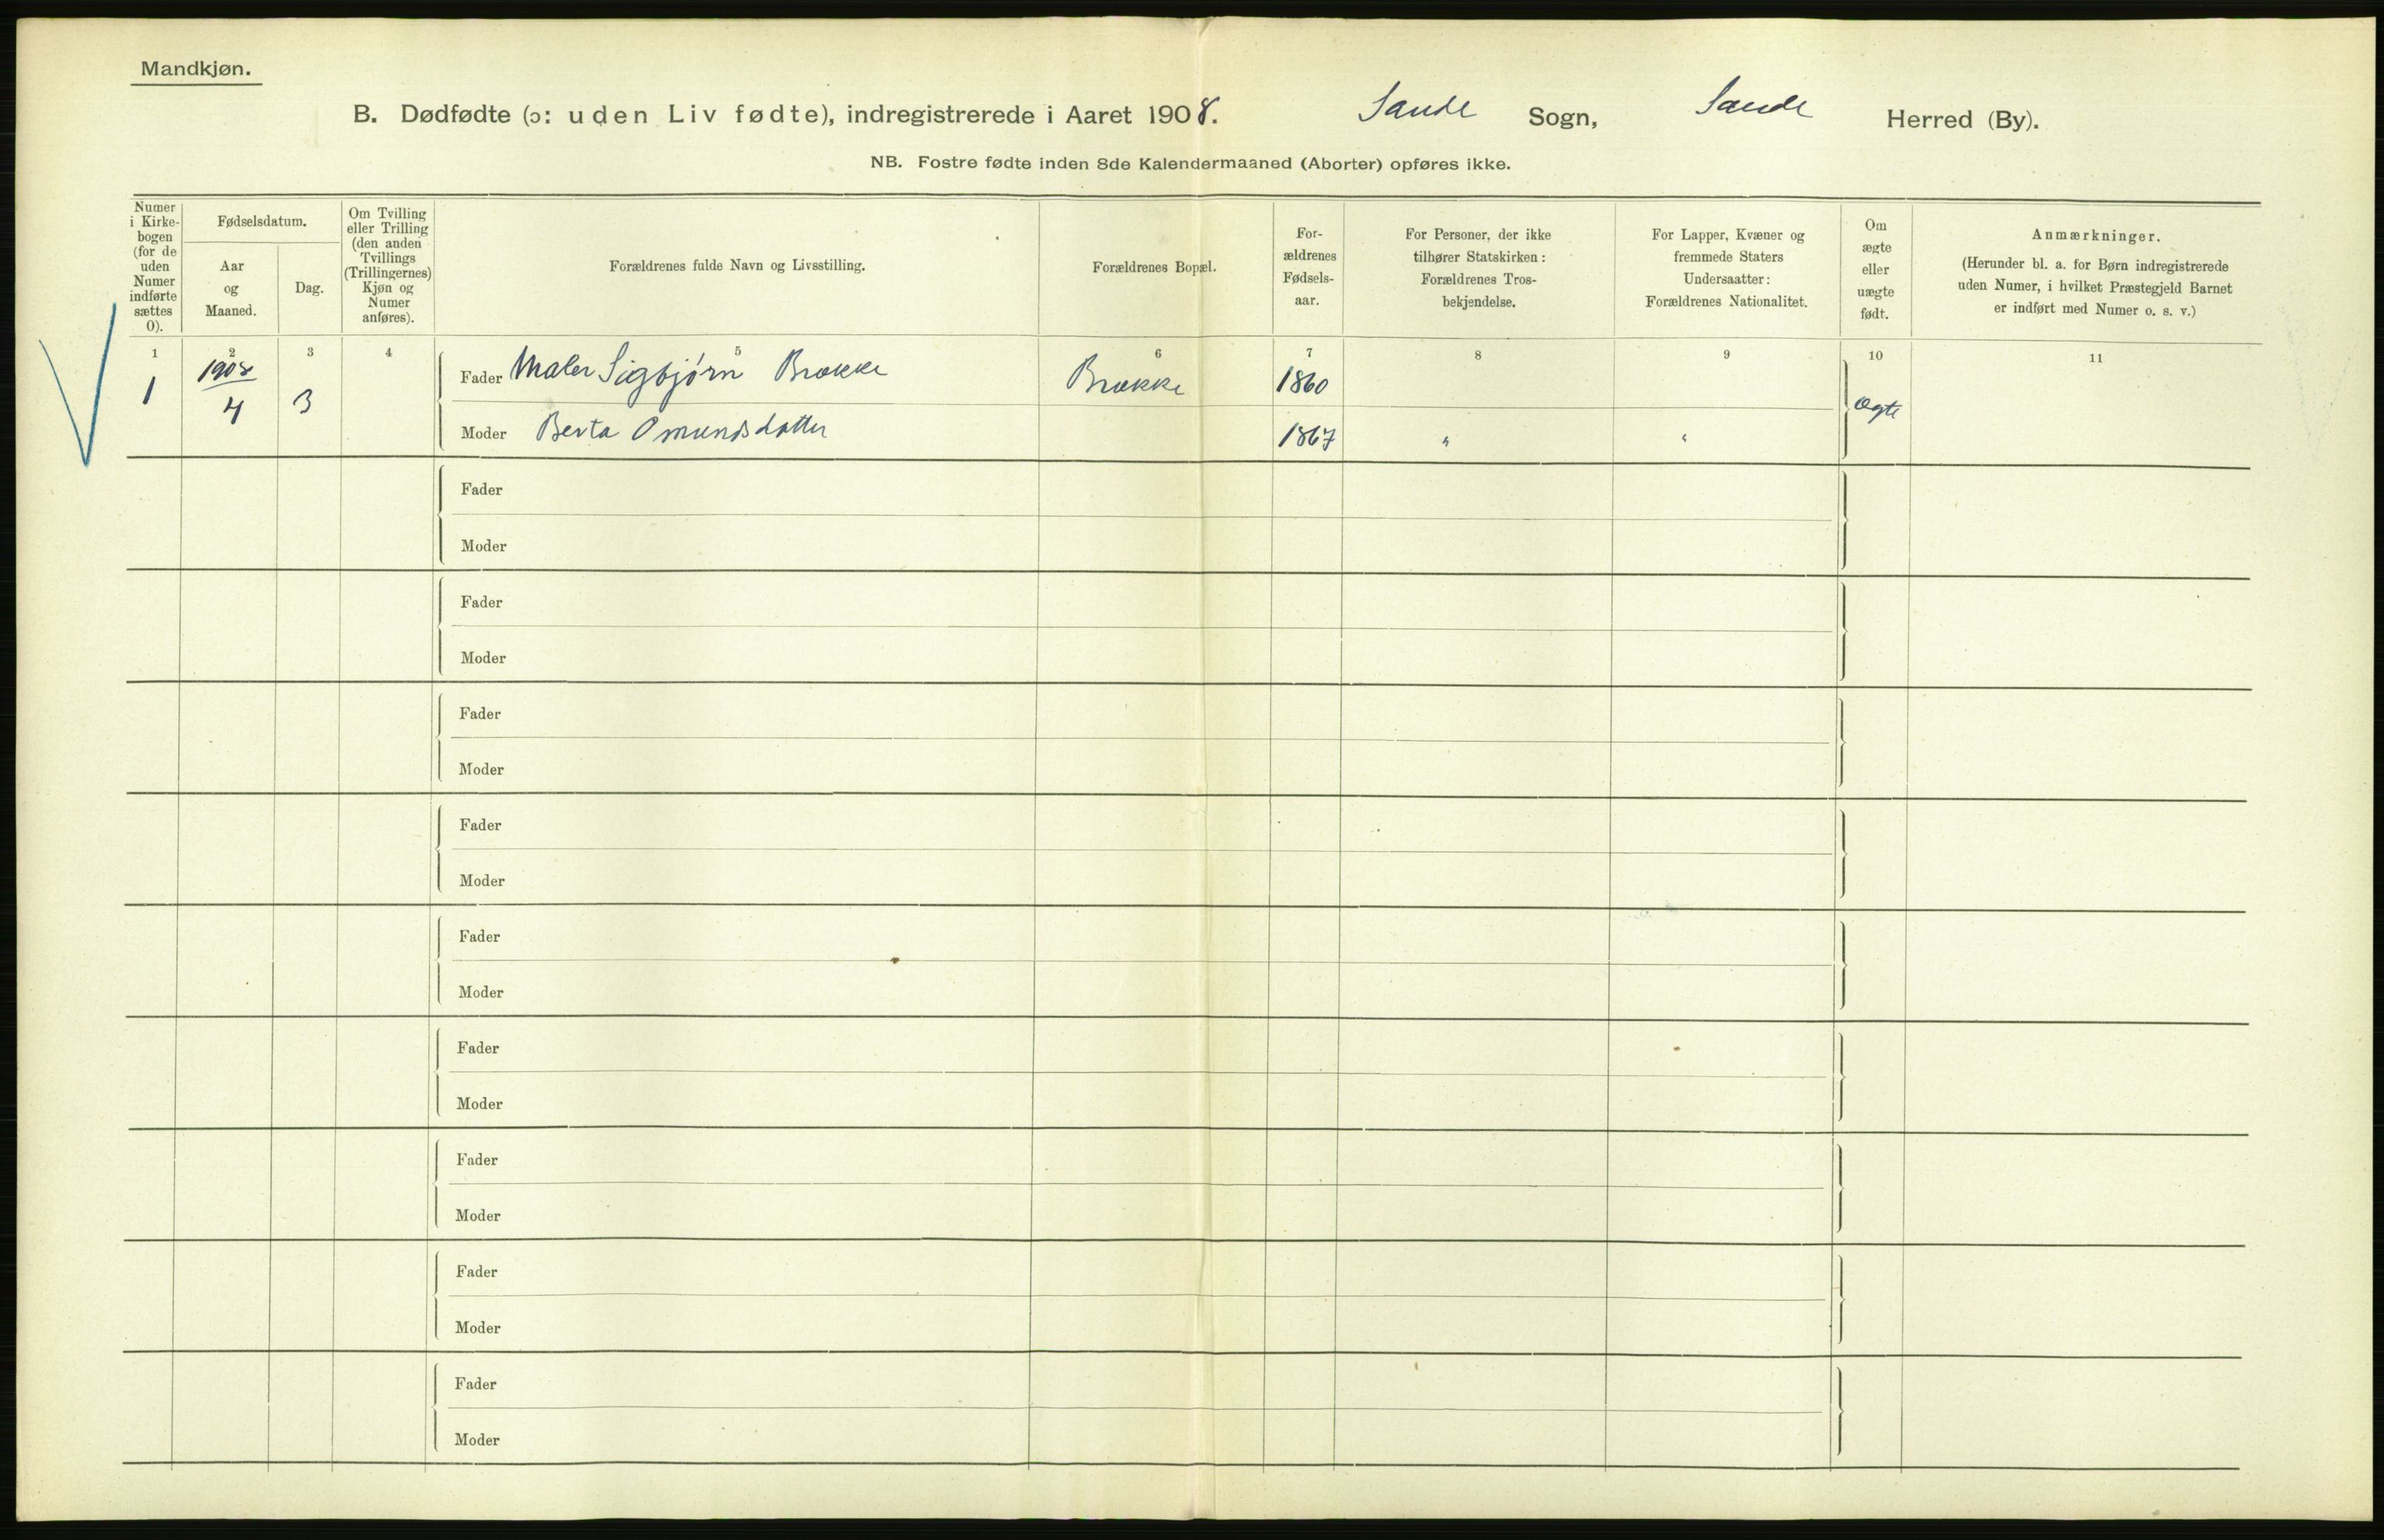 Mandkjøn.
B. Dødfødte (ɔ: uden Liv fødte), indregistrerede i Aaret 1908. Sande Sogn, Sande Herred (By).
NB. Fostre fødte inden 8de Kalendermaaned (Aborter) opføres ikke.
Numer
i Kirke-
bogen
(for de
uden
Numer
indførte
sættes
0).
Fødselsdatum.
Aar
og
Maaned.
Dag.
Om Tvilling
eller Trilling
(den anden
Tvillings
(Trillingernes)
Kjøn og
Numer
anføres).
Forældrenes fulde Navn og Livsstilling.
Forældrenes Bopæl.
For-
ældrenes
Fødsels-
aar.
For Personer, der ikke
tilhører Statskirken:
Forældrenes Tros-
bekjendelse.
For Lapper, Kvæner og
fremmede Staters
Undersaatter:
Forældrenes Nationalitet.
Om
ægte
eller
uægte
født.
Anmærkninger.
(Herunder bl. a. for Børn indregistrerede
uden Numer, i hvilket Præstegjeld Barnet
er indført med Numer o. s. v.)
1 2 3 4 5 6 7 8 9 10 11
1 1908 4 3
Fader Maler Sigbjørn Brække Brække 1860
Moder Berta Omundsdatter 1867 " "
ægte
Fader
Moder
Fader
Moder
Fader
Moder
Fader
Moder
Fader
Moder
Fader
Moder
Fader
Moder
Fader
Moder
Fader
Moder